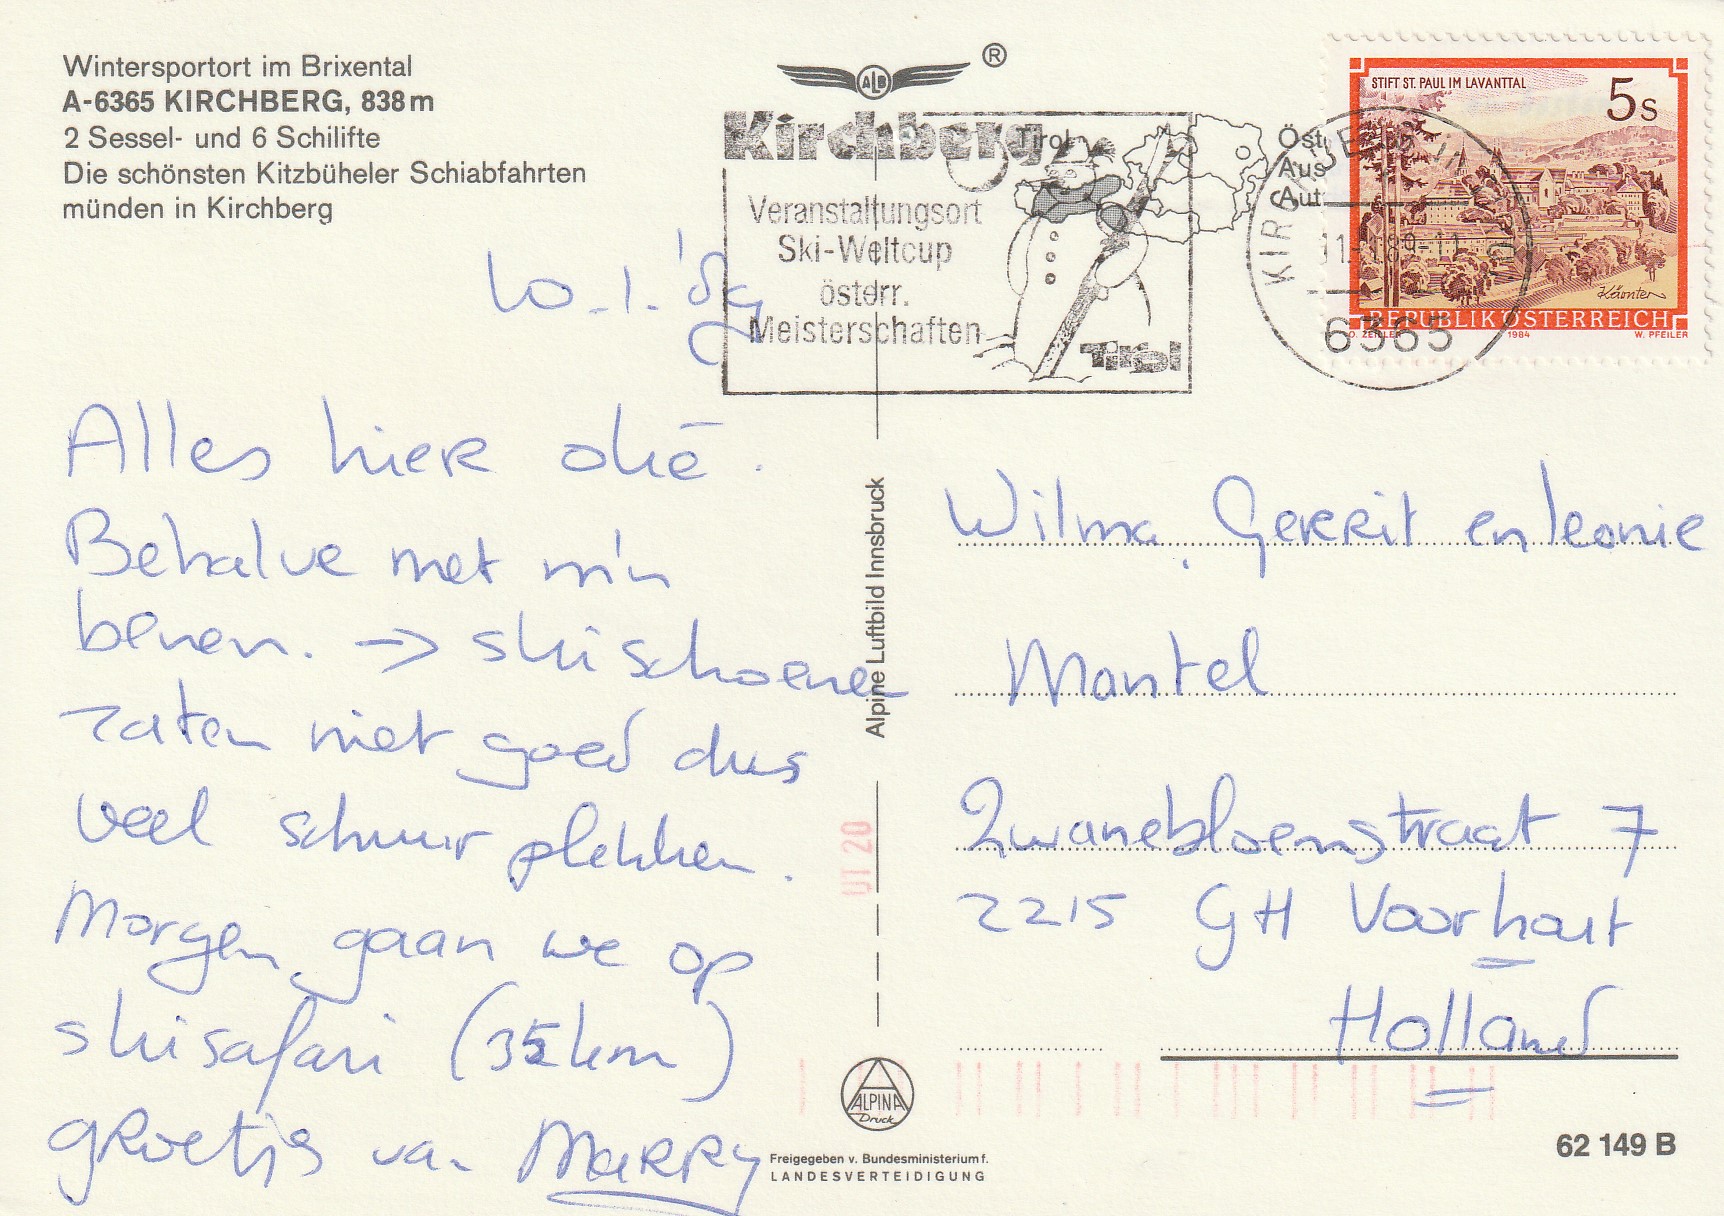 Wintersportort im Brixental
A-6365 KIRCHBERG, 838 m
2 Sessel- und 6 Schilifte
Die schönsten Kitzbüheler Schiabfahrten
münden in Kirchberg
ALB ®
Kirchberg Tirol
Veranstaltungsort
Ski-Weltcup
österr.
Meisterschaften
Tirol
Öst
Aus
Aut
STIFT ST. PAUL IM LAVANTTAL
5s
Kärnten
REPUBLIK ÖSTERREICH
O. ZEILLER 1984 W. PFEILER
KIRCHBERG IN TIROL
6365
10-1-'89
Alles hier oké.
Behalve met m'n
benen. -> skischoenen
zaten niet goed dus
veel schuur plekken.
Morgen gaan we op
skisafari (35 km)
gRoetjs va. MaRRy
Alpine Luftbild Innsbruck
UT 20
Wilma, GeRRit en leonie
Mantel
Zwanebloemstraat 7
2215 GH Voorhout
Holland
ALPINA
Druck
Freigegeben v. Bundesministerium f.
LANDESVERTEIDIGUNG
62 149 B